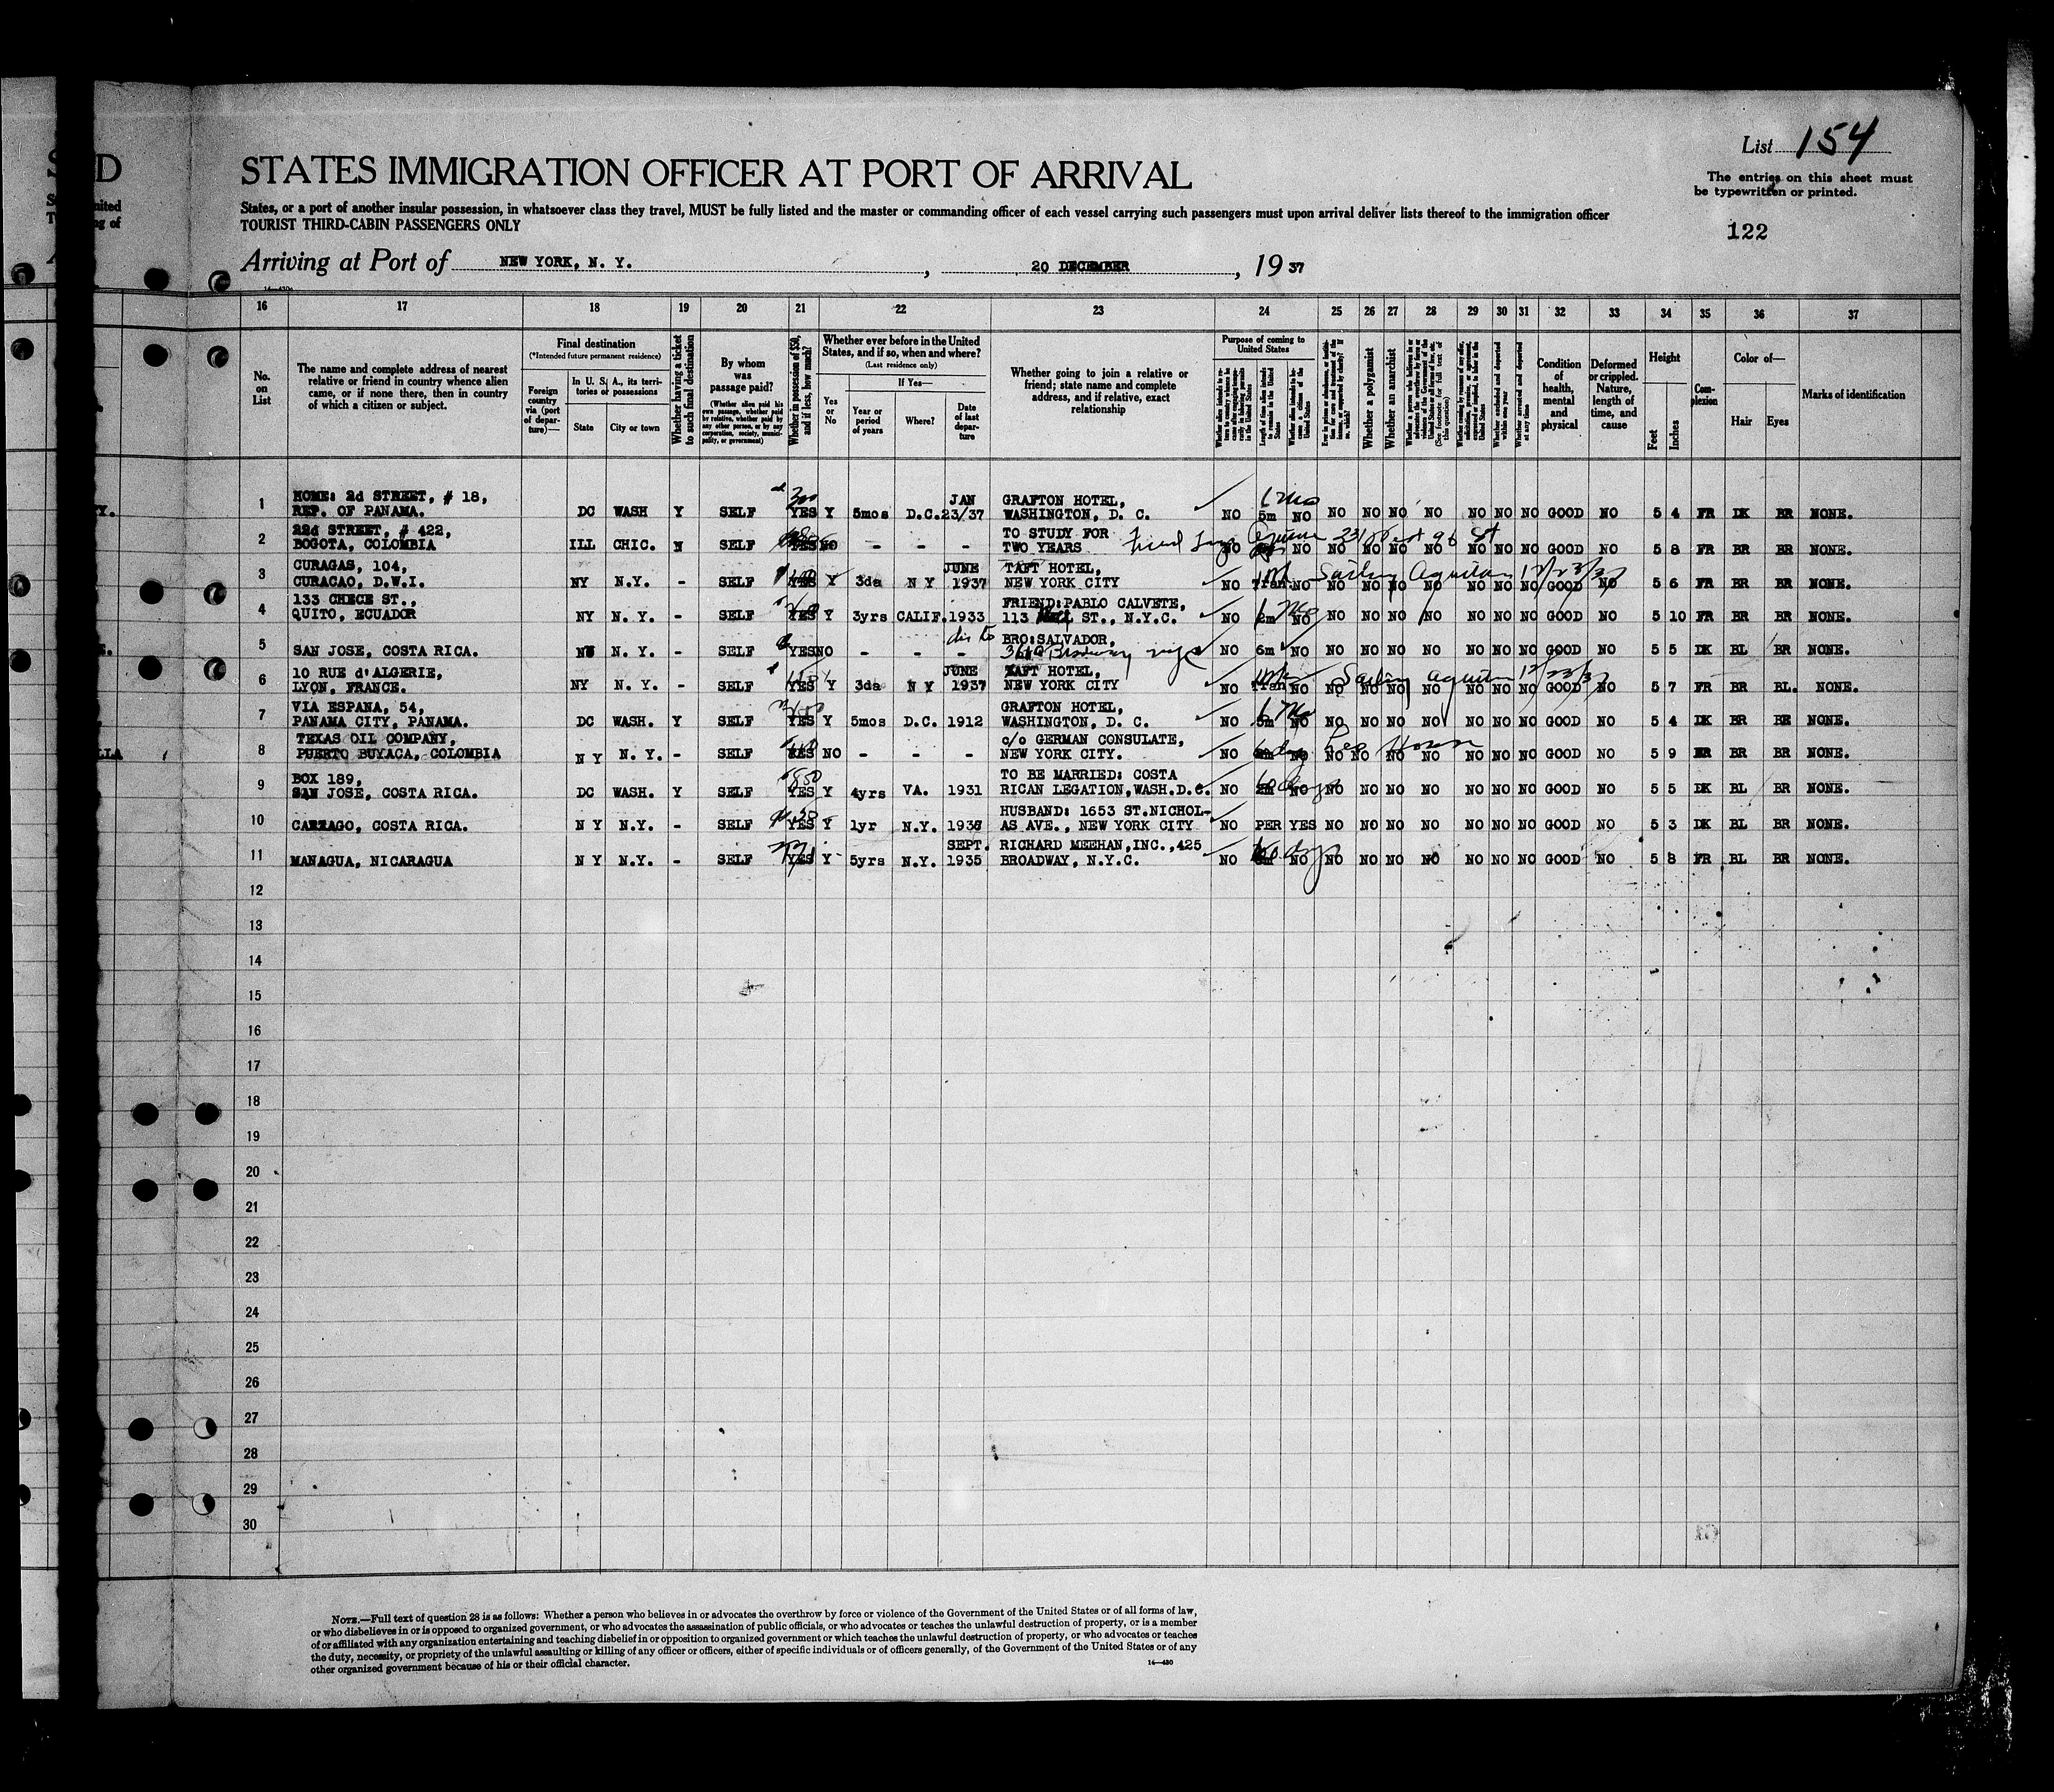 List 154
The entries on this sheet must
be typewritten or printed.
122
STATES IMMIGRATION OFFICER AT PORT OF ARRIVAL
States, or a port of another insular possession, in whatsoever class they travel, MUST be fully listed and the master or commanding officer of each vessel carrying such passengers must upon arrival deliver lists thereof to the immigration officer
TOURIST THIRD-CABIN PASSENGERS ONLY
Arriving at Port of NEW YORK, N. Y. , 20 DECEMBER , 19 37
16 17 18 19 20 21 22 23 24 25 26 27 28 29 30 31 32 33 34 35 36 37
No. on List
The name and complete address of nearest relative or friend in country whence alien came, or if none there, then in country of which a citizen or subject.
Final destination
(*Intended future permanent residence)
Foreign country via (port of departure)—
In U. S. A., its territories or possessions
State
City or town
Whether having a ticket to such final destination
By whom was passage paid?
(Whether alien paid his own passage, whether paid by relative, whether paid by any other person, or by any corporation, society, municipality, or government)
Whether in possession of $50, and if less, how much?
Whether ever before in the United States, and if so, when and where?
(Last residence only)
Yes or No
If Yes—
Year or period of years
Where?
Date of last departure
Whether going to join a relative or friend; state name and complete address, and if relative, exact relationship
Purpose of coming to United States
Length of time alien intends to remain in the United States
Whether a polygamist
Whether an anarchist
(See footnote for full text of this question)
Whether arrested and deported at any time
Condition of health, mental and physical
Deformed or crippled. Nature, length of time, and cause
Height
Feet
Inches
Complexion
Color of—
Hair
Eyes
Marks of identification
1 HOME: 2d STREET, # 18, JAN GRAFTON HOTEL,
REP. OF PANAMA. DC WASH Y SELF YES Y 5mos D.C. 23/37 WASHINGTON, D. C. NO 5m NO NO NO NO NO NO NO NO GOOD NO 5 4 FR DK BR NONE.
2 22d STREET, # 422, TO STUDY FOR
BOGOTA, COLOMBIA ILL CHIC. N SELF YES NO - - - TWO YEARS NO NO NO NO NO NO NO NO NO GOOD NO 5 8 FR BR BR NONE.
3 CURAGAS, 104, JUNE TAFT HOTEL,
CURACAO, D.W.I. NY N.Y. - SELF YES Y 3da N Y 1937 NEW YORK CITY NO Tran NO NO NO NO NO NO NO NO GOOD NO 5 6 FR BR BR NONE.
Sailing Aquitan 12/23/37
4 133 CHECE ST., FRIEND: PABLO CALVETE,
QUITO, ECUADOR NY N. Y. - SELF YES Y 3yrs CALIF. 1933 113 ST., N.Y.C. NO NO NO NO NO NO NO NO NO GOOD NO 5 10 FR BR BR NONE.
5 BRO: SALVADOR,
SAN JOSE, COSTA RICA. N. Y. - SELF YES NO - - - Broadway NO 6m NO NO NO NO NO NO NO GOOD NO 5 5 DK BL BR NONE.
6 10 RUE d'ALGERIE, JUNE TAFT HOTEL,
LYON, FRANCE. NY N. Y. - SELF YES Y 3da N Y 1937 NEW YORK CITY NO Tran NO NO NO NO NO NO NO NO GOOD NO 5 7 FR BR BL. NONE.
Sailing Aquitan 12/23/37
7 VIA ESPANA, 54, GRAFTON HOTEL,
PANAMA CITY, PANAMA. DC WASH. Y SELF YES Y 5mos D.C. 1912 WASHINGTON, D. C. NO 5m NO NO NO NO NO NO NO NO GOOD NO 5 4 DK BR BR NONE.
8 TEXAS OIL COMPANY, c/o GERMAN CONSULATE,
PUERTO BUYACA, COLOMBIA N Y N. Y. - SELF YES NO - - - NEW YORK CITY. NO NO NO NO NO NO NO NO NO GOOD NO 5 9 BR BR NONE.
9 BOX 189, TO BE MARRIED: COSTA
SAN JOSE, COSTA RICA. DC WASH. Y SELF YES Y 4yrs VA. 1931 RICAN LEGATION, WASH.D.C. NO NO NO NO NO NO NO NO NO GOOD NO 5 5 DK BL BR NONE.
10 HUSBAND: 1653 ST.NICHOL-
CARTAGO, COSTA RICA. N Y N.Y. - SELF YES Y 1yr N.Y. 1936 AS AVE., NEW YORK CITY NO PER YES NO NO NO NO NO NO NO GOOD NO 5 3 DK BL BR NONE.
11 SEPT. RICHARD MEEHAN, INC., 425
MANAGUA, NICARAGUA N Y N.Y. - SELF YES Y 5yrs N.Y. 1935 BROADWAY, N.Y.C. NO NO NO NO NO NO NO NO NO GOOD NO 5 8 FR BL BR NONE.
12
13
14
15
16
17
18
19
20
21
22
23
24
25
26
27
28
29
30
NOTE.—Full text of question 28 is as follows: Whether a person who believes in or advocates the overthrow by force or violence of the Government of the United States or of all forms of law,
or who disbelieves in or is opposed to organized government, or who advocates the assassination of public officials, or who advocates or teaches the unlawful destruction of property, or is a member
of or affiliated with any organization entertaining and teaching disbelief in or opposition to organized government or which teaches the unlawful destruction of property, or who advocates or teaches
the duty, necessity, or propriety of the unlawful assaulting or killing of any officer or officers, either of specific individuals or of officers generally, of the Government of the United States or of any
other organized government because of his or their official character.
14—430